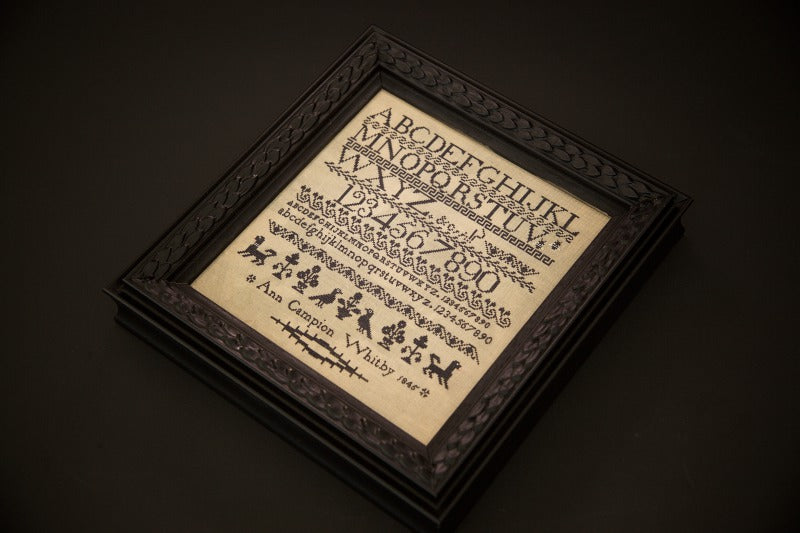 ABCDEFGHIJKL
MNOPQRSTUV
WXYZ. &c.
1234567890
ABCDEFGHIJKLMNOPQRSTUVWXYZ. 1234567890
abcdefghijklmnopqrstuvwxyz. 1234567890
Ann Campion Whitby 1846